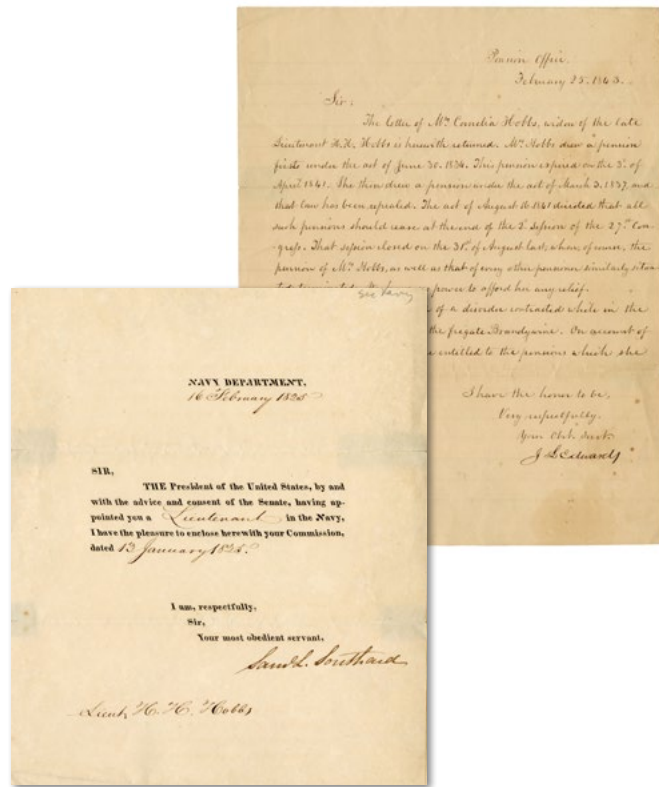 Pension Office.
February 25. 1843.
Sir:
The letter of Mrs. Cornelia Hobbs, widow of the late
Lieutenant H. H. Hobbs is herewith returned. Mrs. Hobbs drew a pension
first under the act of June 30. 1834. This pension expired on the 3d. of
April 1841. She then drew a pension under the act of March 3. 1837, and
that law has been repealed. The act of August 16 1841 directed that all
such pensions should cease at the end of the 2d. session of the 27th. Con-
gress. That session closed on the 31st. of August last, when, of course, the
pension of Mrs. Hobbs, as well as that of every other pensioner similarly situa-
power to afford her any relief.
of a disorder contracted while in the
the frigate Brandywine. On account of
entitled to the pensions which she
I have the honor to be,
Very respectfully,
Your Obt. Servt.
J L Edwards
See Navy
NAVY DEPARTMENT,
16 February 1825
SIR,
THE President of the United States, by and
with the advice and consent of the Senate, having ap-
pointed you a Lieutenant in the Navy,
I have the pleasure to enclose herewith your Commission,
dated 13 January 1825.
I am, respectfully,
Sir,
Your most obedient servant,
Saml L. Southard
Lieut. H. H. Hobbs